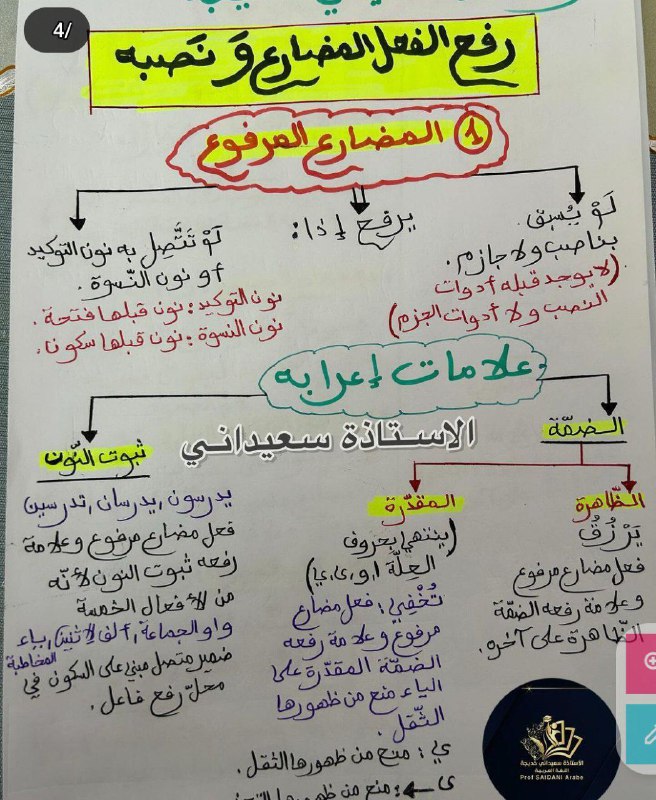 4/
رفع الفعل المضارع وَ نَصبه
1 المضارع المرفوع
يرفع إذا:
لمْ يُسبق
بناصب ولا جازم.
(لا يوجد قبله أدوات
النصب ولا أدوات الجزم)
لمْ تَتَّصِل به نون التوكيد
أو نون النّسوة.
نون التوكيد: نون قبلها فتحة.
نون النسوة: نون قبلها سكون.
علامات إعرابه
الاستاذة سعيداني
الضمّة
الظّاهرة
يَرْزُقُ
فعل مضارع مرفوع
وعلامة رفعه الضمّة
الظّاهرة على آخره.
المقدّرة
(ينتهي بحروف
العلّة ا، و، ى، ي)
تُخْفِي: فعل مضارع
مرفوع وعلامة رفعه
الضمّة المقدّرة على
الياء منع من ظهورها
الثّقل.
ي: منع من ظهورها الثقل.
ى ← : منع من ظهورها
ثبوت النّون
يدرسون, يدرسان, تدرسين
فعل مضارع مرفوع وعلامة
رفعه ثبوت النون لأنّه
من الأفعال الخمسة
واو الجماعة, ألف الاثنين, ياء
المخاطبة
ضمير متصل مبني على السكون في
محلّ رفع فاعل.
الأستاذة سعيداني خديجة
اللغة العربية
Prof SAIDANI Arabe